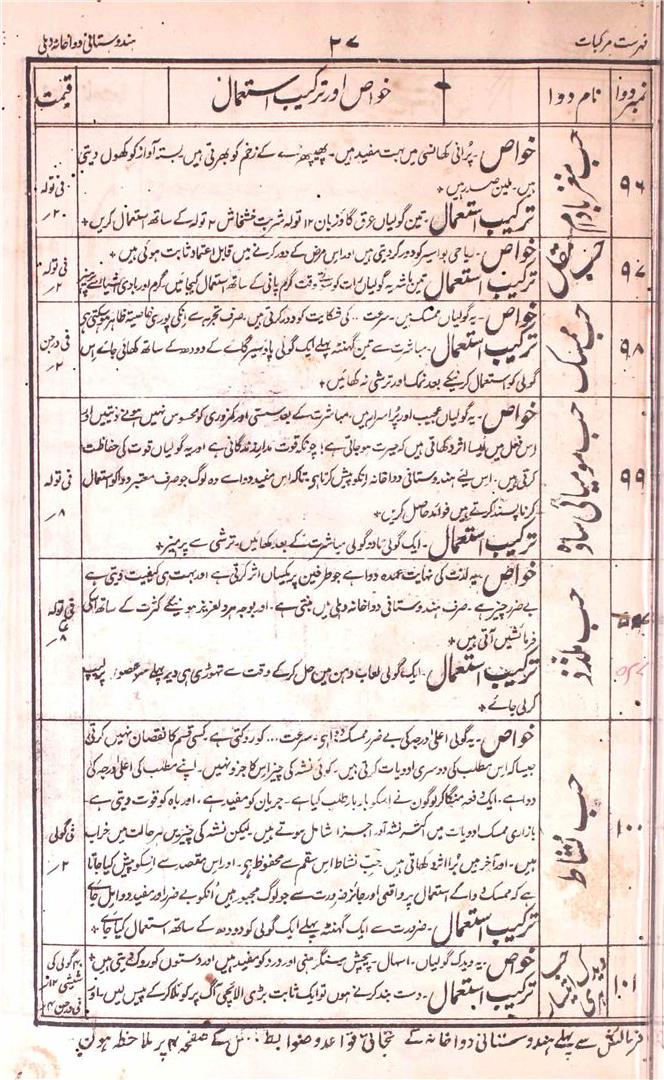 فہرست مرکبات
۲۷
ہندوستانی دواخانہ دہلی
نمبر دوا
نام دوا
خواص اور ترکیب استعمال
قیمت
۹۶
حب مغز بادام
خواص۔ پرانی کھانسی میں بہت مفید ہیں۔ پھیپھڑے کے زخم کو بھرتی ہیں بستہ آواز کو کھول دیتی
ہیں۔ ملین صدر ہیں ٭
ترکیب استعمال۔ تین گولیاں عرق گاؤزبان ۱۲ تولہ شربت خشخاش ۲ تولہ کے ساتھ استعمال کریں ٭
فی تولہ
۲۰؍
۹۷
حب مقل
خواص۔ ریاحی بواسیر کو دور کر دیتی ہیں اور اس مرض کے دور کرنے میں قابل اعتماد ثابت ہوئی ہیں ٭
ترکیب استعمال تین ماشہ یہ گولیاں رات کو سوتے وقت گرم پانی کے ساتھ استعمال کیجائیں گرم اور بادی اشیا سے پرہیز
فی تولہ
۲؍
۹۸
حب ممسک
خواص۔ یہ گولیاں ممسک ہیں۔ سرعت .. کی شکایت کو دور کرتی ہیں۔ صرف تجربہ سے انکی پوری خاصیت ظاہر ہو سکتی ہی
ترکیب استعمال۔ مباشرت سے تین گھنٹہ پہلے ایک گولی پاؤ سیر گائے کے دودھ کے ساتھ کھائی جائے اس
گولی کو استعمال کرنیکے بعد نمک اور ترشی نہ کھائیں ٭
فی درجن
۲؍
۹۹
حب مومیائی سادہ
خواص۔ یہ گولیاں عجیب اور پُر اسرار ہیں۔ مباشرت کے بعد سستی اور کمزوری کو محسوس نہیں ہونے دیتیں اور
اس فعل میں ایسا اثر دکھاتی ہیں کہ حیرت ہو جاتی ہے! چونکہ قوت مدار زندگانی ہے اور یہ گولیاں قوت کی حفاظت
کرتی ہیں۔ اس لیے ہندوستانی دواخانہ انکو پیش کرتا ہی تاکہ اس مفید دوا سے وہ لوگ جو صرف معتبر دوا کو استعمال
کرنا پسند کرتے ہیں فوائد حاصل کریں ٭
ترکیب استعمال۔ ایک گولی یا دو گولی مباشرت کے بعد کھائیں۔ ترشی سے پرہیز ٭
فی تولہ
۸؍
حب ملذذ
خواص۔ یہ لذت کی نہایت عمدہ دوا ہے جو طرفین پر یکساں اثر کرتی ہے اور بہت ہی کیفیت دیتی ہے
بے ضرر چیز ہے۔ صرف ہندوستانی دواخانہ دہلی میں بنتی ہے۔ اور بوجہ ہر دلعزیز ہونیکے کثرت کے ساتھ اسکی
فرمائشیں آتی ہیں ٭
ترکیب استعمال۔ ایک گولی لعاب دہن میں حل کر کے وقت سے تھوڑی ہی دیر پہلے سر عضو پر لیپ
کر لی جائے ٭
فی تولہ
۱۰۰
حب نشاط
خواص۔ یہ گولی اعلیٰ درجہ کی بے ضرر ممسک دوا ہی۔ سرعت ... کو روکتی ہے۔ کسی قسم کا نقصان نہیں کرتی
جیسا کہ اس مطلب کی دوسری ادویات کرتی ہیں۔ کوئی نشہ کی چیز اس کا جزو نہیں۔ اپنے مطلب کی اعلیٰ درجہ کی
دوا ہے۔ ایک دفعہ منگا کر لوگوں نے اسکو بار بار طلب کیا ہے۔ جریان کو مفید ہے۔ اور باہ کو قوت دیتی ہے۔
بازاری ممسک ادویات میں اکثر نشہ آور اجزا شامل ہوتے ہیں۔ لیکن نشہ کی چیزیں ہر حالت میں خراب
ہیں۔ اور آخر میں بُرا اثر دکھاتی ہیں حبّ نشاط اس سقم سے محفوظ ہی۔ اور اس مقصد سے اسکو پیش کیا جاتا
ہے کہ ممسک دوا کے استعمال پر واقعی اور جائز ضرورت سے جو لوگ مجبور ہیں اُنکو بے ضرر اور مفید دوا مل جائے
ترکیب استعمال۔ ضرورت سے ایک گھنٹہ پہلے ایک گولی کو دودھ کے ساتھ استعمال کیا جائے ٭
فی گولی
۲؍
۱۰۱
خواص۔ یہ ویدک گولیاں۔ اسہال۔ پیچش سنگرہنی اور درد کو مفید ہیں اور دستوں کو روک دیتی ہیں ٭
ترکیب استعمال۔ دست بند کرنے ہوں تو ایک ثابت بڑی الائچی آگ پر کوئلا کر کے پیس لیں۔ اور
۲۰ گولی کی
شیشی ۱۲؍
فی درجن ۴؍
فرمائش سے پہلے ہندوستانی دواخانہ کے تجارتی قواعد و ضوابط ... کے صفحہ ۴ پر ملاحظہ ہوں